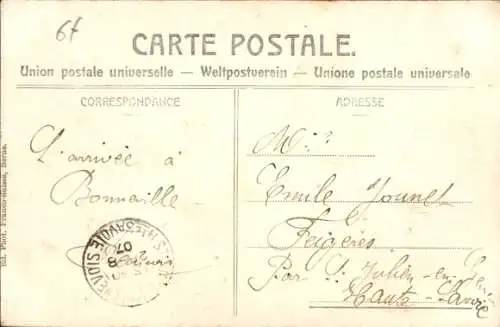 67
CARTE POSTALE.
Union postale universelle — Weltpostverein — Unione postale universale
CORRESPONDANCE
ADRESSE
L'arrivée à
Bonnaille
Emile Jounet
Feigères
Par St Julien-en-Genevois
Haute-Savoie
Ed. Phot. Franco-Suisse, Berne.